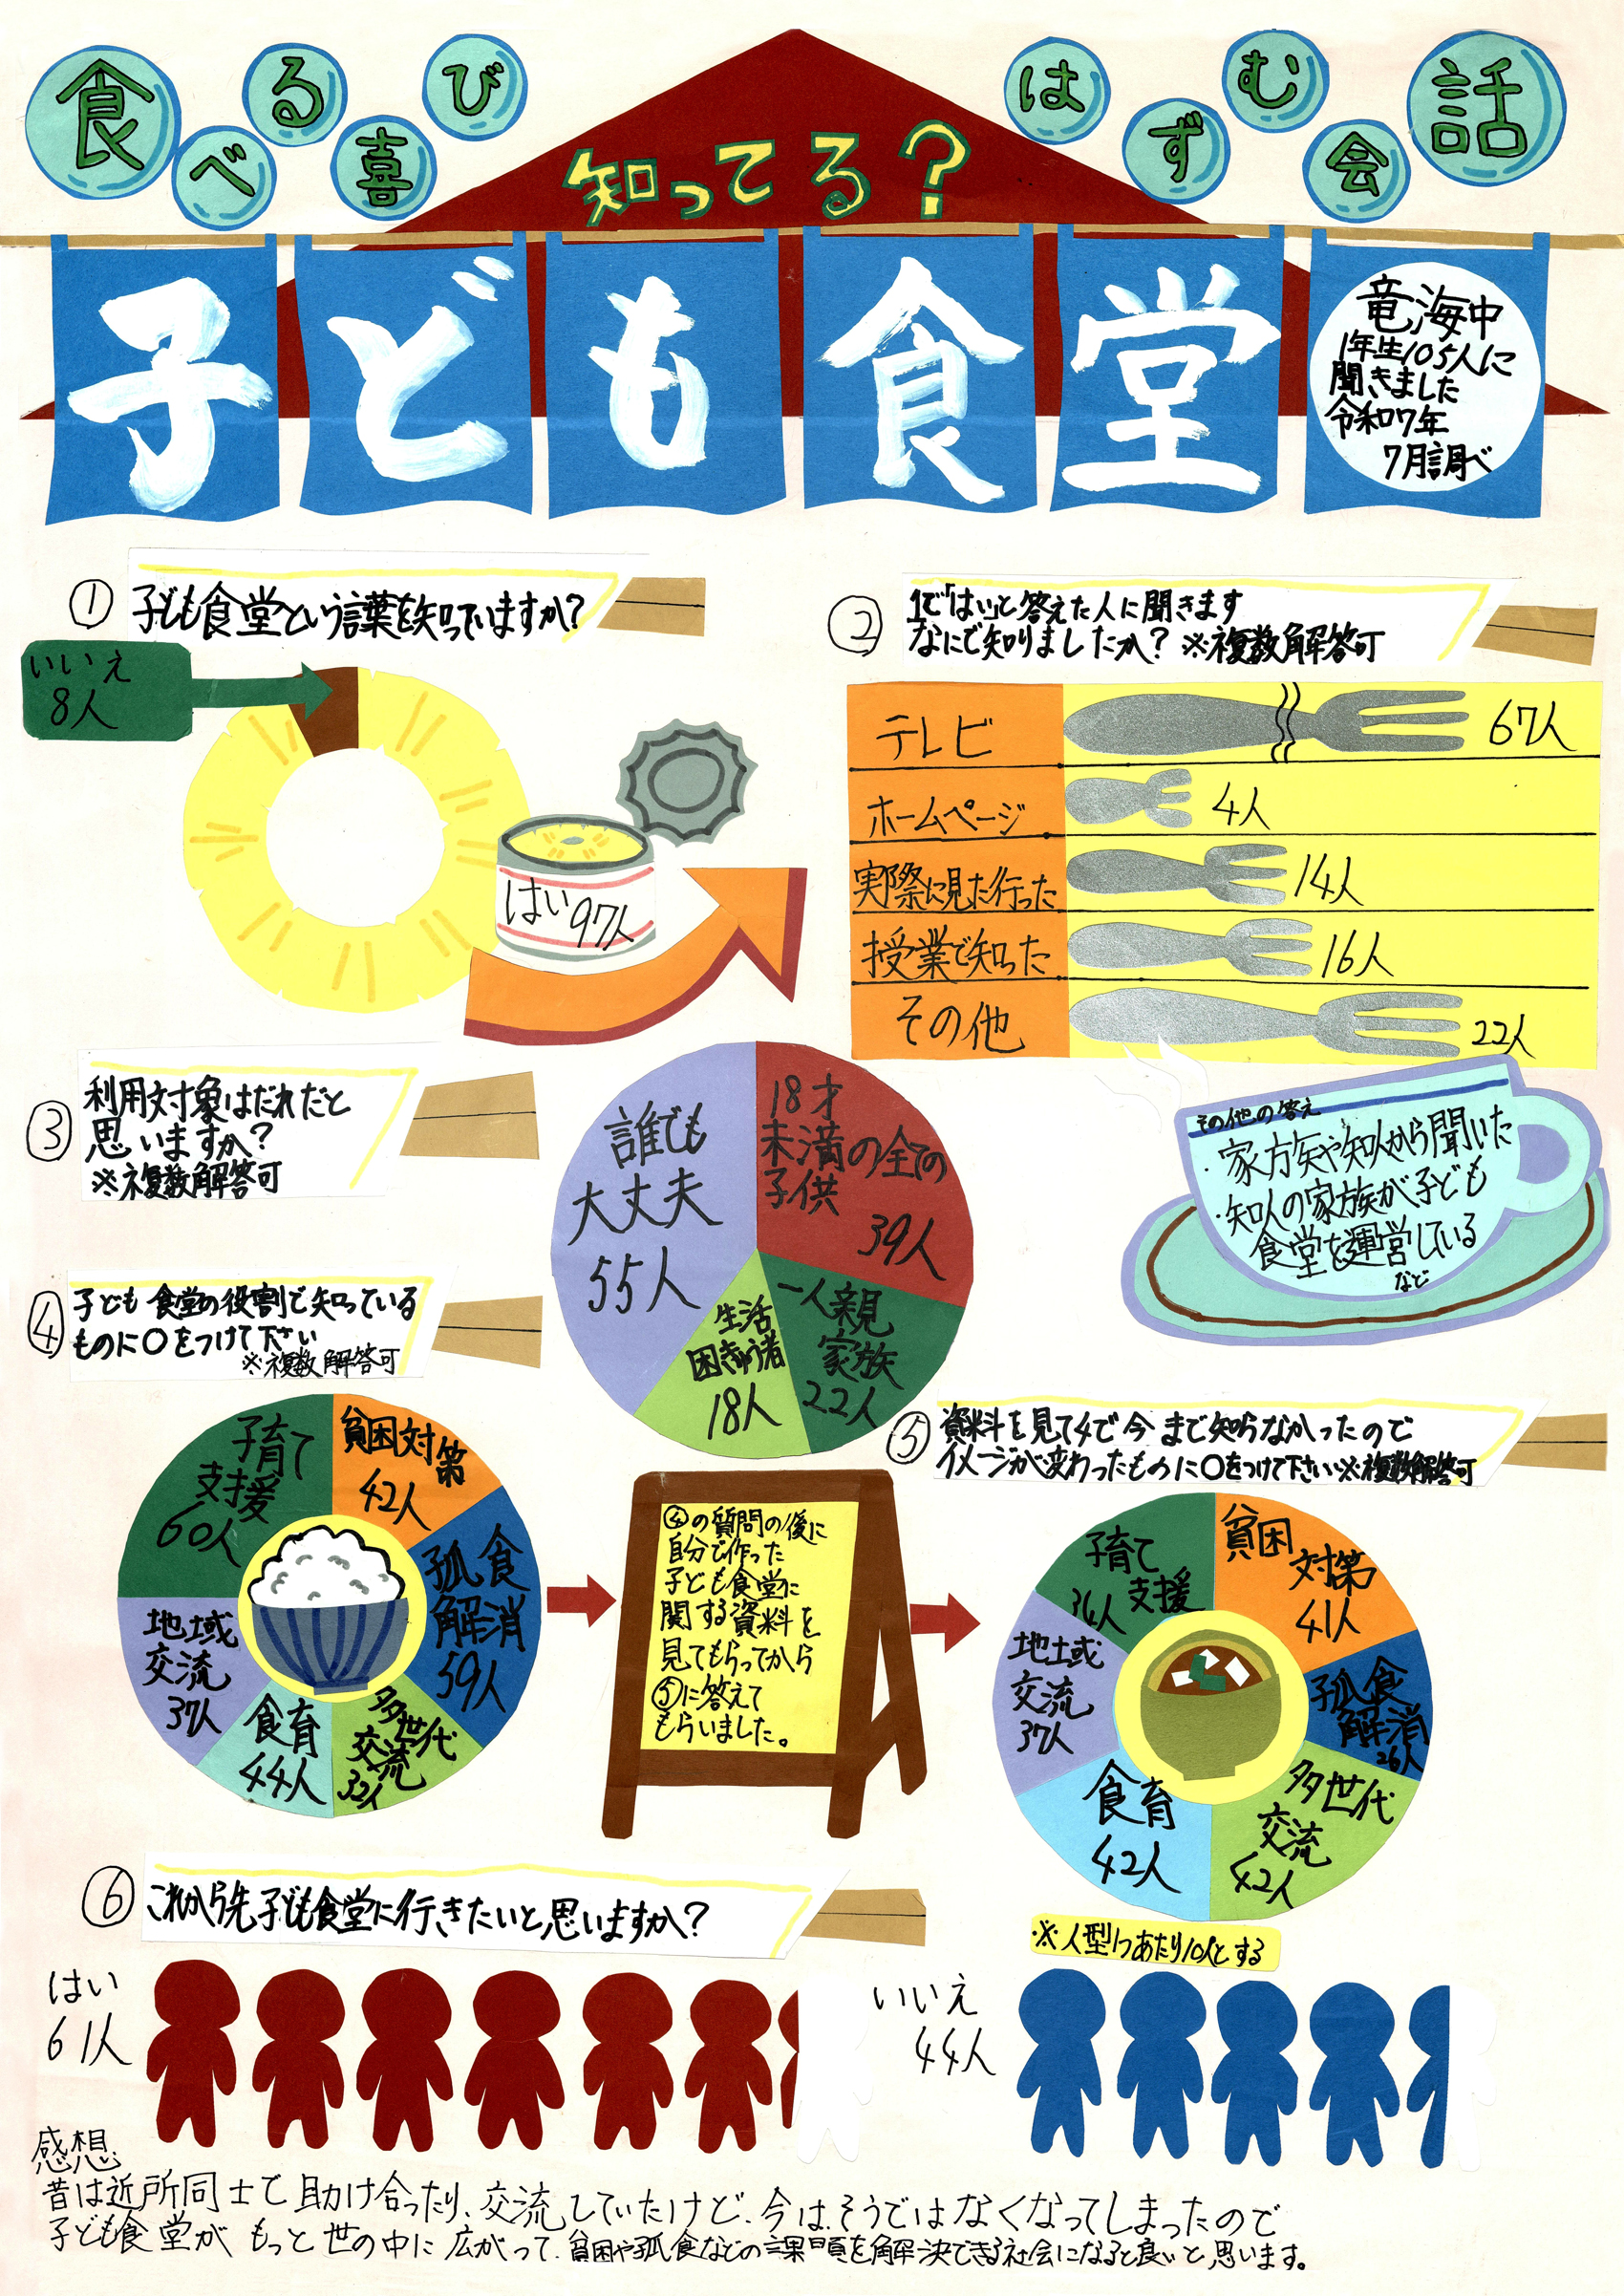 食べる喜び
はずむ会話
知ってる?
子ども食堂
竜海中
1年生105人に
聞きました
令和7年
7月調べ
① 子ども食堂という言葉を知っていますか?
いいえ
8人
はい97人
② 1で「はい」と答えた人に聞きます
なにで知りましたか? ※複数解答可
テレビ 67人
ホームページ 4人
実際に見た行った 14人
授業で知った 16人
その他 22人
その他の答え
・家族や知人から聞いた
・知人の家族が子ども
食堂を運営している
など
③ 利用対象はだれだと
思いますか?
※複数解答可
18才
未満の全ての
子供
39人
一人親
家族
22人
生活
困きゅう者
18人
誰でも
大丈夫
55人
④ 子ども食堂の役割で知っている
ものに○をつけて下さい
※複数解答可
貧困対策
42人
孤食
解消
59人
多世代
交流
32人
食育
44人
地域
交流
37人
子育て
支援
60人
④の質問の後に
自分で作った
子ども食堂に
関する資料を
見てもらってから
⑤に答えて
もらいました。
⑤ 資料を見て4で今まで知らなかったので
イメージが変わったものに○をつけて下さい※複数解答可
貧困
対策
41人
孤食
解消
26人
多世代
交流
42人
食育
42人
地域
交流
37人
子育て
支援
34人
⑥ これから先子ども食堂に行きたいと思いますか?
※人型1つあたり10人とする
はい
61人
いいえ
44人
感想
昔は近所同士で助け合ったり、交流していたけど、今はそうではなくなってしまったので
子ども食堂がもっと世の中に広がって、貧困や孤食などの課題を解決できる社会になると良いと思います。